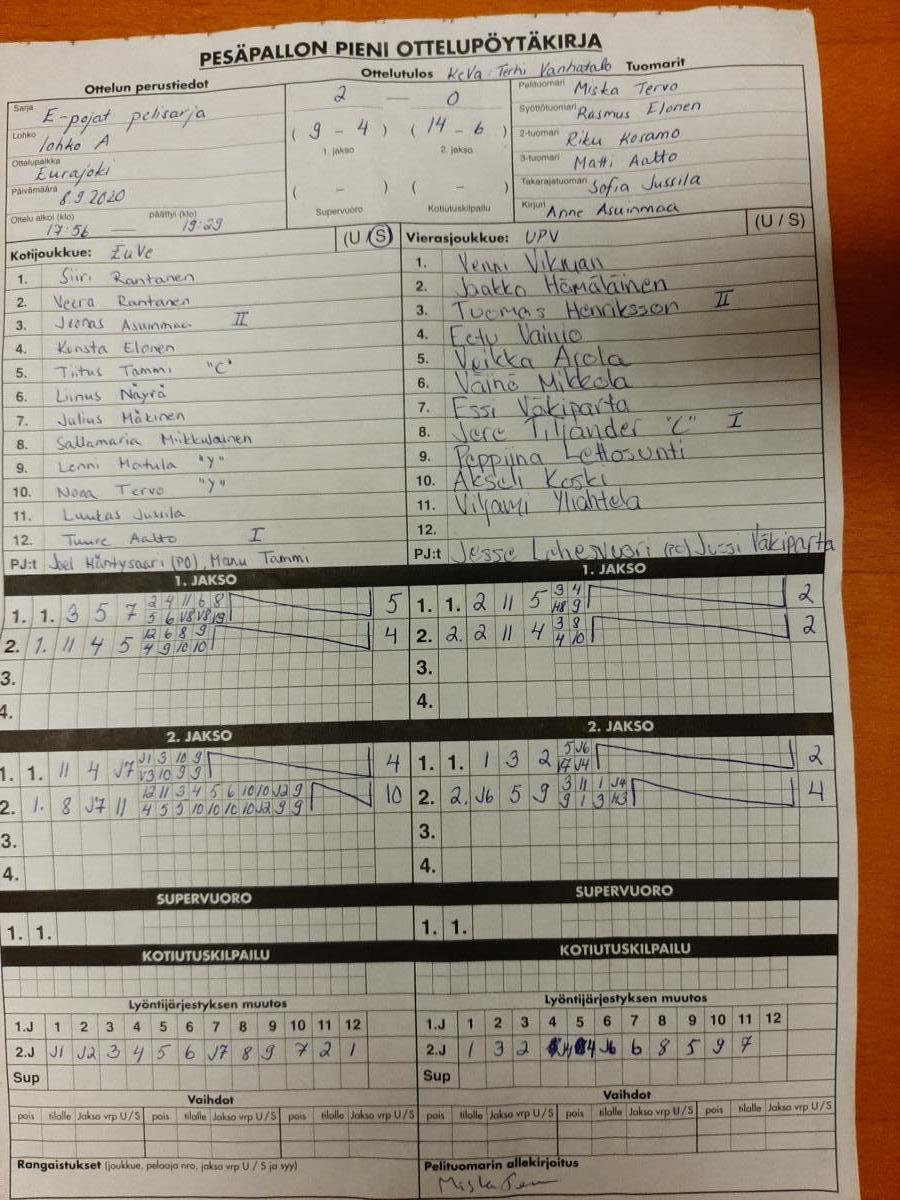 PESÄPALLON PIENI OTTELUPÖYTÄKIRJA
Ottelun perustiedot
Ottelutulos KeVa: Terhi Vanhatalo Tuomarit
Sarja E-pojat pelisarja
Lohko lohko A
Ottelupaikka Eurajoki
Päivämäärä 8.9 2020
Ottelu alkoi (klo) päättyi (klo)
17:56 — 19:29
2 — 0
( 9 - 4 ) ( 14 - 6 )
1. jakso 2. jakso
( - ) ( - )
Supervuoro Kotiutuskilpailu
Pelituomari Miska Tervo
Syöttötuomari Rasmus Elonen
2-tuomari Riku Kosamo
3-tuomari Matti Aalto
Takarajatuomari Sofia Jussila
Kirjuri Anne Asuinmaa
Kotijoukkue: EuVe (U / S)
1. Siiri Rantanen
2. Veera Rantanen
3. Joonas Asuinmaa II
4. Konsta Elonen
5. Tiitus Tammi "C"
6. Liinus Näyrä
7. Julius Mäkinen
8. Sallamaria Miikkulainen
9. Lenni Matula "y"
10. Nooa Tervo "y"
11. Luukas Jussila
12. Tuure Aalto I
PJ:t Joel Mäntysaari (PO), Manu Tammi
Vierasjoukkue: UPV (U / S)
1. Venni Vikman
2. Jaakko Hämäläinen
3. Tuomas Henriksson II
4. Eetu Vainio
5. Veikka Arola
6. Väinö Mikkola
7. Essi Väkiparta
8. Jere Tiljander "C" I
9. Peppiina Lettosunti
10. Akseli Koski
11. Viljami Yliahtela
12.
PJ:t Jesse (PO) Jussi Väkiparta
1. JAKSO
1. 1. 3 5 7 2 4 11 6 8 5
5 6 V8 V8 19
2. 1. 11 4 5 12 6 8 9 4
4 9 10 10
3.
4.
1. JAKSO
1. 1. 2 11 5 3 4 2
H8 9
2. 2. 2 11 4 3 8 2
4 10
3.
4.
2. JAKSO
1. 1. 11 4 J7 J1 3 10 9 4
V3 10 9 9
2. 1. 8 J7 11 12 11 3 4 5 6 10 10 J2 9 10
4 5 5 10 10 10 10 J2 9 9
3.
4.
2. JAKSO
1. 1. 1 3 2 5 J6 2
17 J4
2. 2. J6 5 9 3 11 1 J4 4
9 1 3 H3
3.
4.
SUPERVUORO
1. 1.
SUPERVUORO
1. 1.
KOTIUTUSKILPAILU
KOTIUTUSKILPAILU
Lyöntijärjestyksen muutos
1.J 1 2 3 4 5 6 7 8 9 10 11 12
2.J J1 J2 3 4 5 6 J7 8 9 7 2 1
Sup
Lyöntijärjestyksen muutos
1.J 1 2 3 4 5 6 7 8 9 10 11 12
2.J 1 3 2 J4 J6 6 8 5 9 7
Sup
Vaihdot
pois tilalle Jakso vrp U / S pois tilalle Jakso vrp U / S pois tilalle Jakso vrp U / S
Vaihdot
pois tilalle Jakso vrp U / S pois tilalle Jakso vrp U / S pois tilalle Jakso vrp U / S
Rangaistukset (joukkue, pelaaja nro, jakso vrp U / S ja syy)
Pelituomarin allekirjoitus
Miska